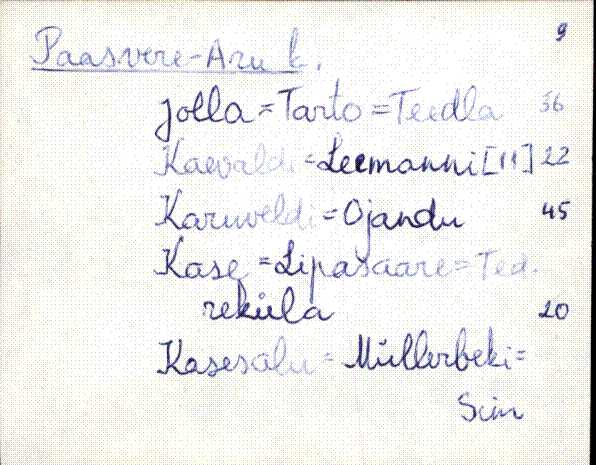 9
Paasvere-Aru k.
Jolla = Tarto = Teedla 36
Kaevaldi = Leemanni [11] 22
Karuveldi = Ojandu 45
Kase = Lipasaare = Ted.
reküla 20
Kasesalu = Müllerbeki =
Sim